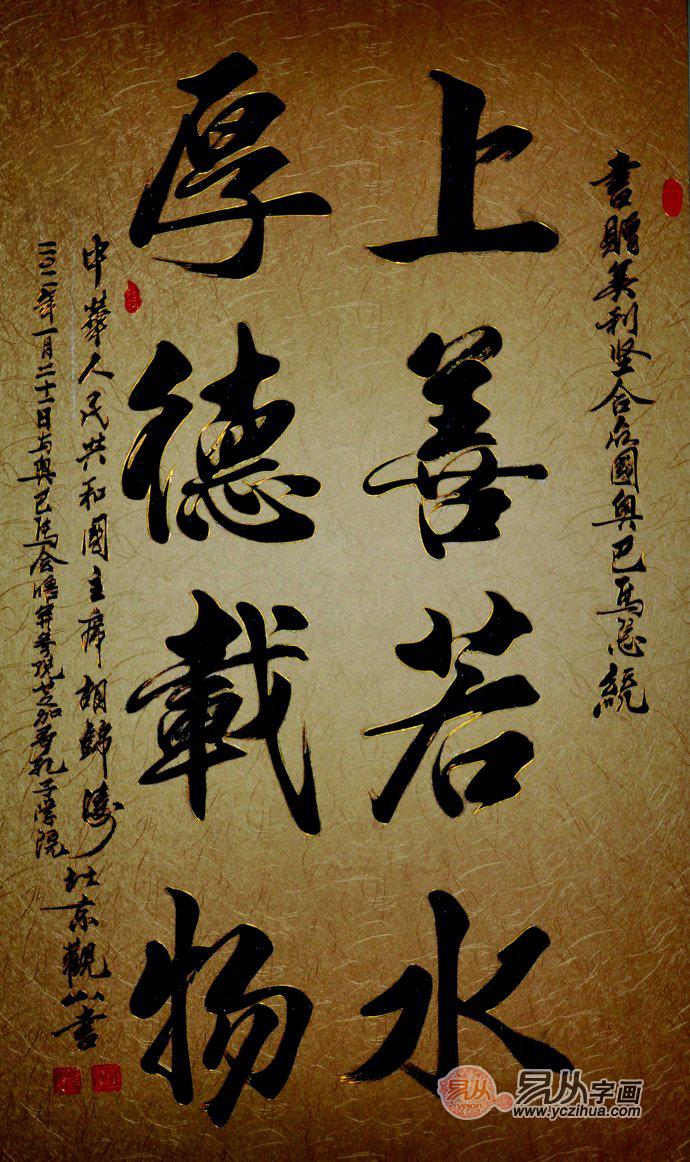 書贈美利坚合众國奥巴马总統
上善若水
厚德載物
中華人民共和國主席胡錦濤
二〇一一年一月二十一日与奥巴马会晤并参观芝加哥孔子学院
京觀山書
易从
易从字画
www.yczihua.com